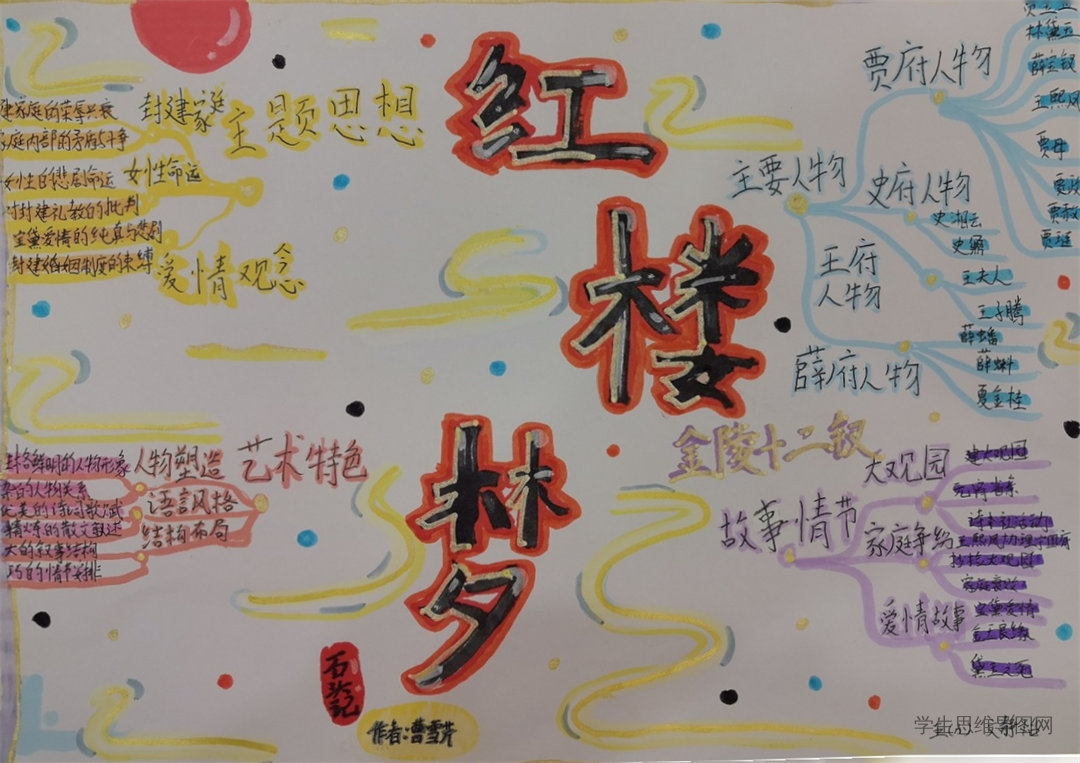 红
楼
梦
石头记
作者:曹雪芹
主题思想
封建家庭
建家庭的荣辱兴衰
家庭内部的矛盾斗争
女性命运
女性的悲剧命运
对封建礼教的批判
爱情观念
宝黛爱情的纯真与悲剧
封建婚姻制度的束缚
艺术特色
人物塑造
鲜明的人物形象
杂的人物关系
语言风格
优美的诗词歌赋
精炼的散文叙述
结构布局
大的叙事结构
巧的情节安排
主要人物
贾府人物
林黛玉
薛宝钗
王熙凤
贾母
贾政
贾赦
贾琏
史府人物
史湘云
史鼐
王府
人物
王夫人
王子腾
薛府人物
薛蟠
薛蝌
夏金桂
金陵十二钗
故事情节
大观园
建大观园
元宵省亲
诗社活动
家庭争纷
王熙凤办理宁国府
抄检大观园
家庭衰败
爱情故事
宝黛爱情
金玉良缘
黛玉之死
学生思维导图网